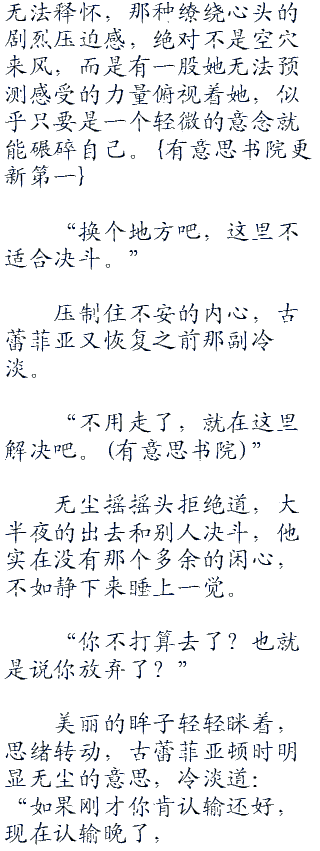 无法释怀，那种缭绕心头的
剧烈压迫感，绝对不是空穴
来风，而是有一股她无法预
测感受的力量俯视着她，似
乎只要是一个轻微的意念就
能碾碎自己。{有意思书院更
新第一}
“换个地方吧，这里不
适合决斗。”
压制住不安的内心，古
蕾菲亚又恢复之前那副冷
淡。
“不用走了，就在这里
解决吧。(有意思书院)”
无尘摇摇头拒绝道，大
半夜的出去和别人决斗，他
实在没有那个多余的闲心，
不如静下来睡上一觉。
“你不打算去了？也就
是说你放弃了？”
美丽的眸子轻轻眯着，
思绪转动，古蕾菲亚顿时明
显无尘的意思，冷淡道：
“如果刚才你肯认输还好，
现在认输晚了，